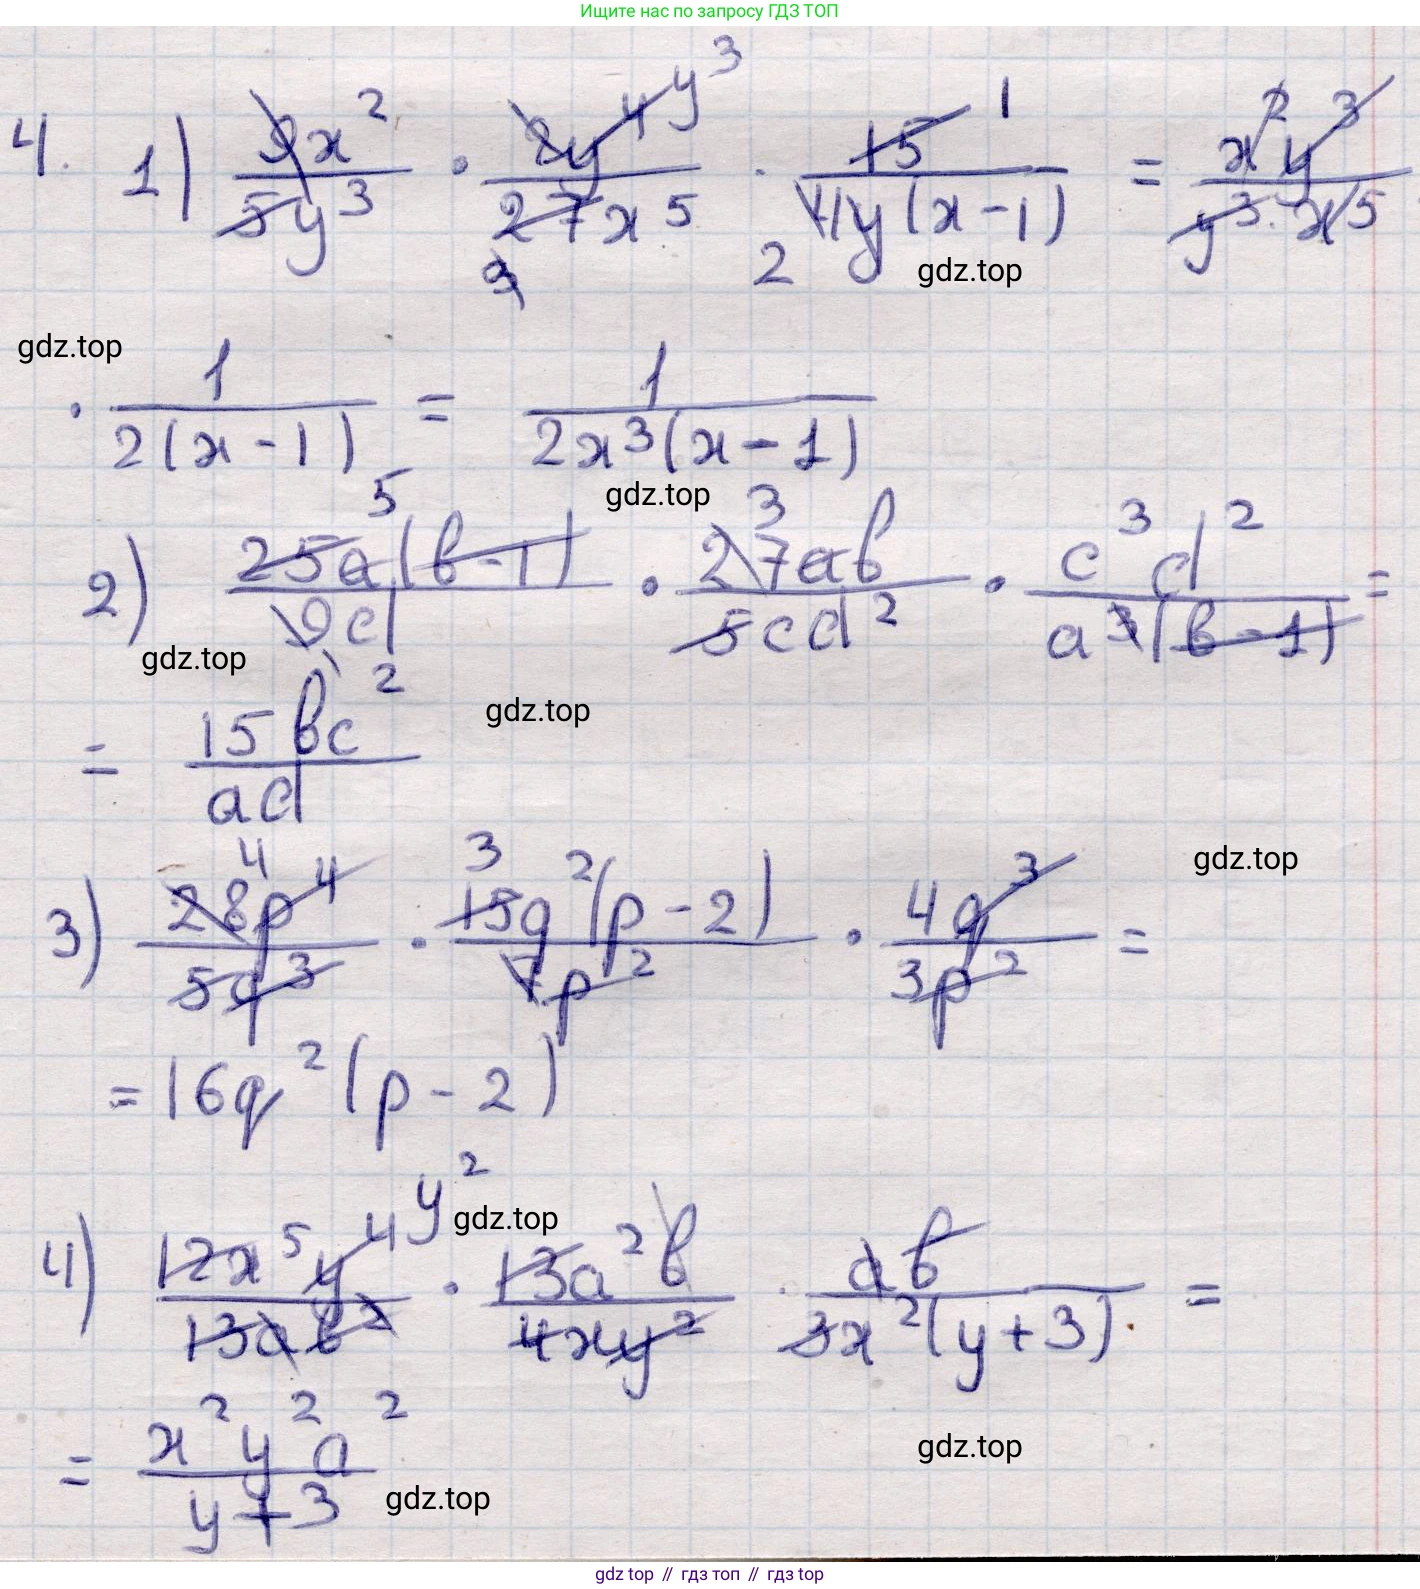 Ищите нас по запросу ГДЗ ТОП
4. 1) 9x²/5y³ · 8y⁴ y³/27x⁵ 9 · 15 1/4y(x-1) 2 = x²y³/y³·x⁵
gdz.top
gdz.top
· 1/2(x-1) = 1/2x³(x-1)
gdz.top
2) 25a(b-1) 5/9cd · 27ab 3/5cd² · c³d²/a³(b-1) =
gdz.top
= 15bc²/ad
gdz.top
gdz.top
3) 28p⁴ 4/5q³ · 15q²(p-2) 3/7p² · 4q³/3p² =
= 16q²(p-2)
4) 12x⁵y⁴ y²/13ab² · 13a²b/4xy² · ab/3x²(y+3) =
gdz.top
= x²y²a²/y+3
gdz.top
gdz.top
gdz.top // гдз.top // гдз top